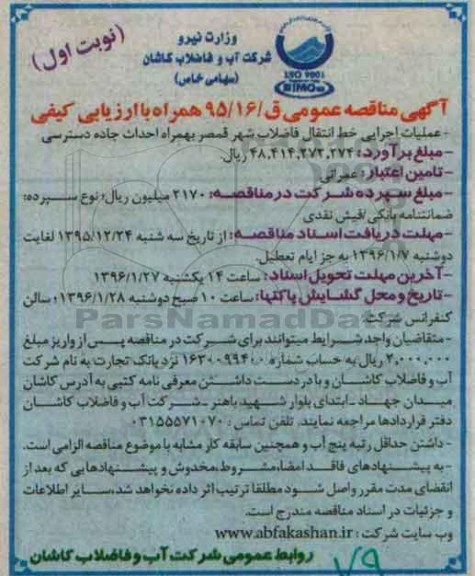 (نوبت اول)
وزارت نیرو
شرکت آب و فاضلاب کاشان
(سهامی خاص)
ISO 9001
آگهی مناقصه عمومی ق/۹۵/۱۶ همراه با ارزیابی کیفی
-عملیات اجرایی خط انتقال فاضلاب شهر قمصر بهمراه احداث جاده دسترسی
-مبلغ برآورد: ۴۸,۴۱۴,۲۷۲,۲۷۴ ریال.
-تامین اعتبار: عمرانی
-مبلغ سپرده شرکت در مناقصه: ۲۱۷۰ میلیون ریال؛ نوع سپرده:
ضمانتنامه بانکی/فیش نقدی
-مهلت دریافت اسناد مناقصه: از تاریخ سه شنبه ۱۳۹۵/۱۲/۲۴ لغایت
دوشنبه ۱۳۹۶/۱/۷ به جز ایام تعطیل.
-آخرین مهلت تحویل اسناد: ساعت ۱۴ یکشنبه ۱۳۹۶/۱/۲۷
-تاریخ و محل گشایش پاکتها: ساعت ۱۰ صبح دوشنبه ۱۳۹۶/۱/۲۸؛ سالن
کنفرانس شرکت
ParsNamadData
-متقاضیان واجد شرایط میتوانند برای شرکت در مناقصه پس از واریز مبلغ
۲,۰۰۰,۰۰۰ ریال به حساب شماره ۱۶۳۰۰۹۹۴۰۰ نزد بانک تجارت به نام شرکت
آب و فاضلاب کاشان و با در دست داشتن معرفی نامه کتبی به آدرس کاشان
میدان جهاد-ابتدای بلوار شهید باهنر-شرکت آب و فاضلاب کاشان
دفتر قراردادها مراجعه نمایند. تلفن تماس: ۰۳۱۵۵۵۷۱۰۷۰
-داشتن حداقل رتبه پنج آب و همچنین سابقه کار مشابه با موضوع مناقصه الزامی است.
-به پیشنهادهای فاقد امضا، مشروط، مخدوش و پیشنهادهایی که بعد از
انقضای مدت مقرر واصل شود مطلقا ترتیب اثر داده نخواهد شد، سایر اطلاعات
و جزئیات در اسناد مناقصه مندرج است.
وب سایت شرکت: www.abfakashan.ir
روابط عمومی شرکت آب و فاضلاب کاشان
۷۹